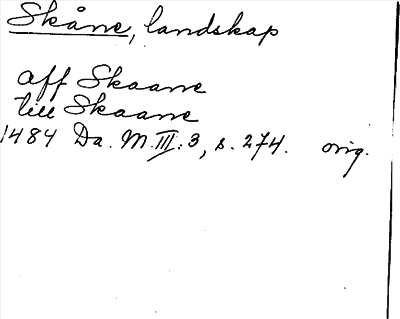 Skåne, landskap
aff Skaane
till Skaane
1484 Da. M. III: 3, s. 274. orig.